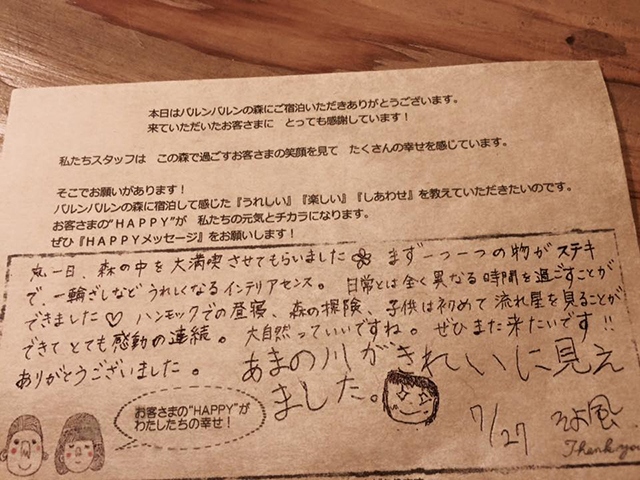 本日はバルンバルンの森にご宿泊いただきありがとうございます。
来ていただいたお客さまに　とっても感謝しています！
私たちスタッフは　この森で過ごすお客さまの笑顔を見て　たくさんの幸せを感じています。
そこでお願いがあります！
バルンバルンの森に宿泊して感じた『うれしい』『楽しい』『しあわせ』を教えていただきたいのです。
お客さまの“HAPPY”が　私たちの元気とチカラになります。
ぜひ『HAPPYメッセージ』をお願いします！
丸一日、森の中を大満喫させてもらいました まず一つ一つの物がステキ
で、一輪ざしなどうれしくなるインテリアセンス。日常とは全く異なる時間を過ごすことが
できました♡ ハンモックでの昼寝、森の探険、子供は初めて流れ星を見ることが
できてとても感動の連続。大自然っていいですね。ぜひまた来たいです!!
ありがとうございました。
あまの川がきれいに見え
ました。
7/27 そよ風
Thank you
お客さまの“HAPPY”が
わたしたちの幸せ！